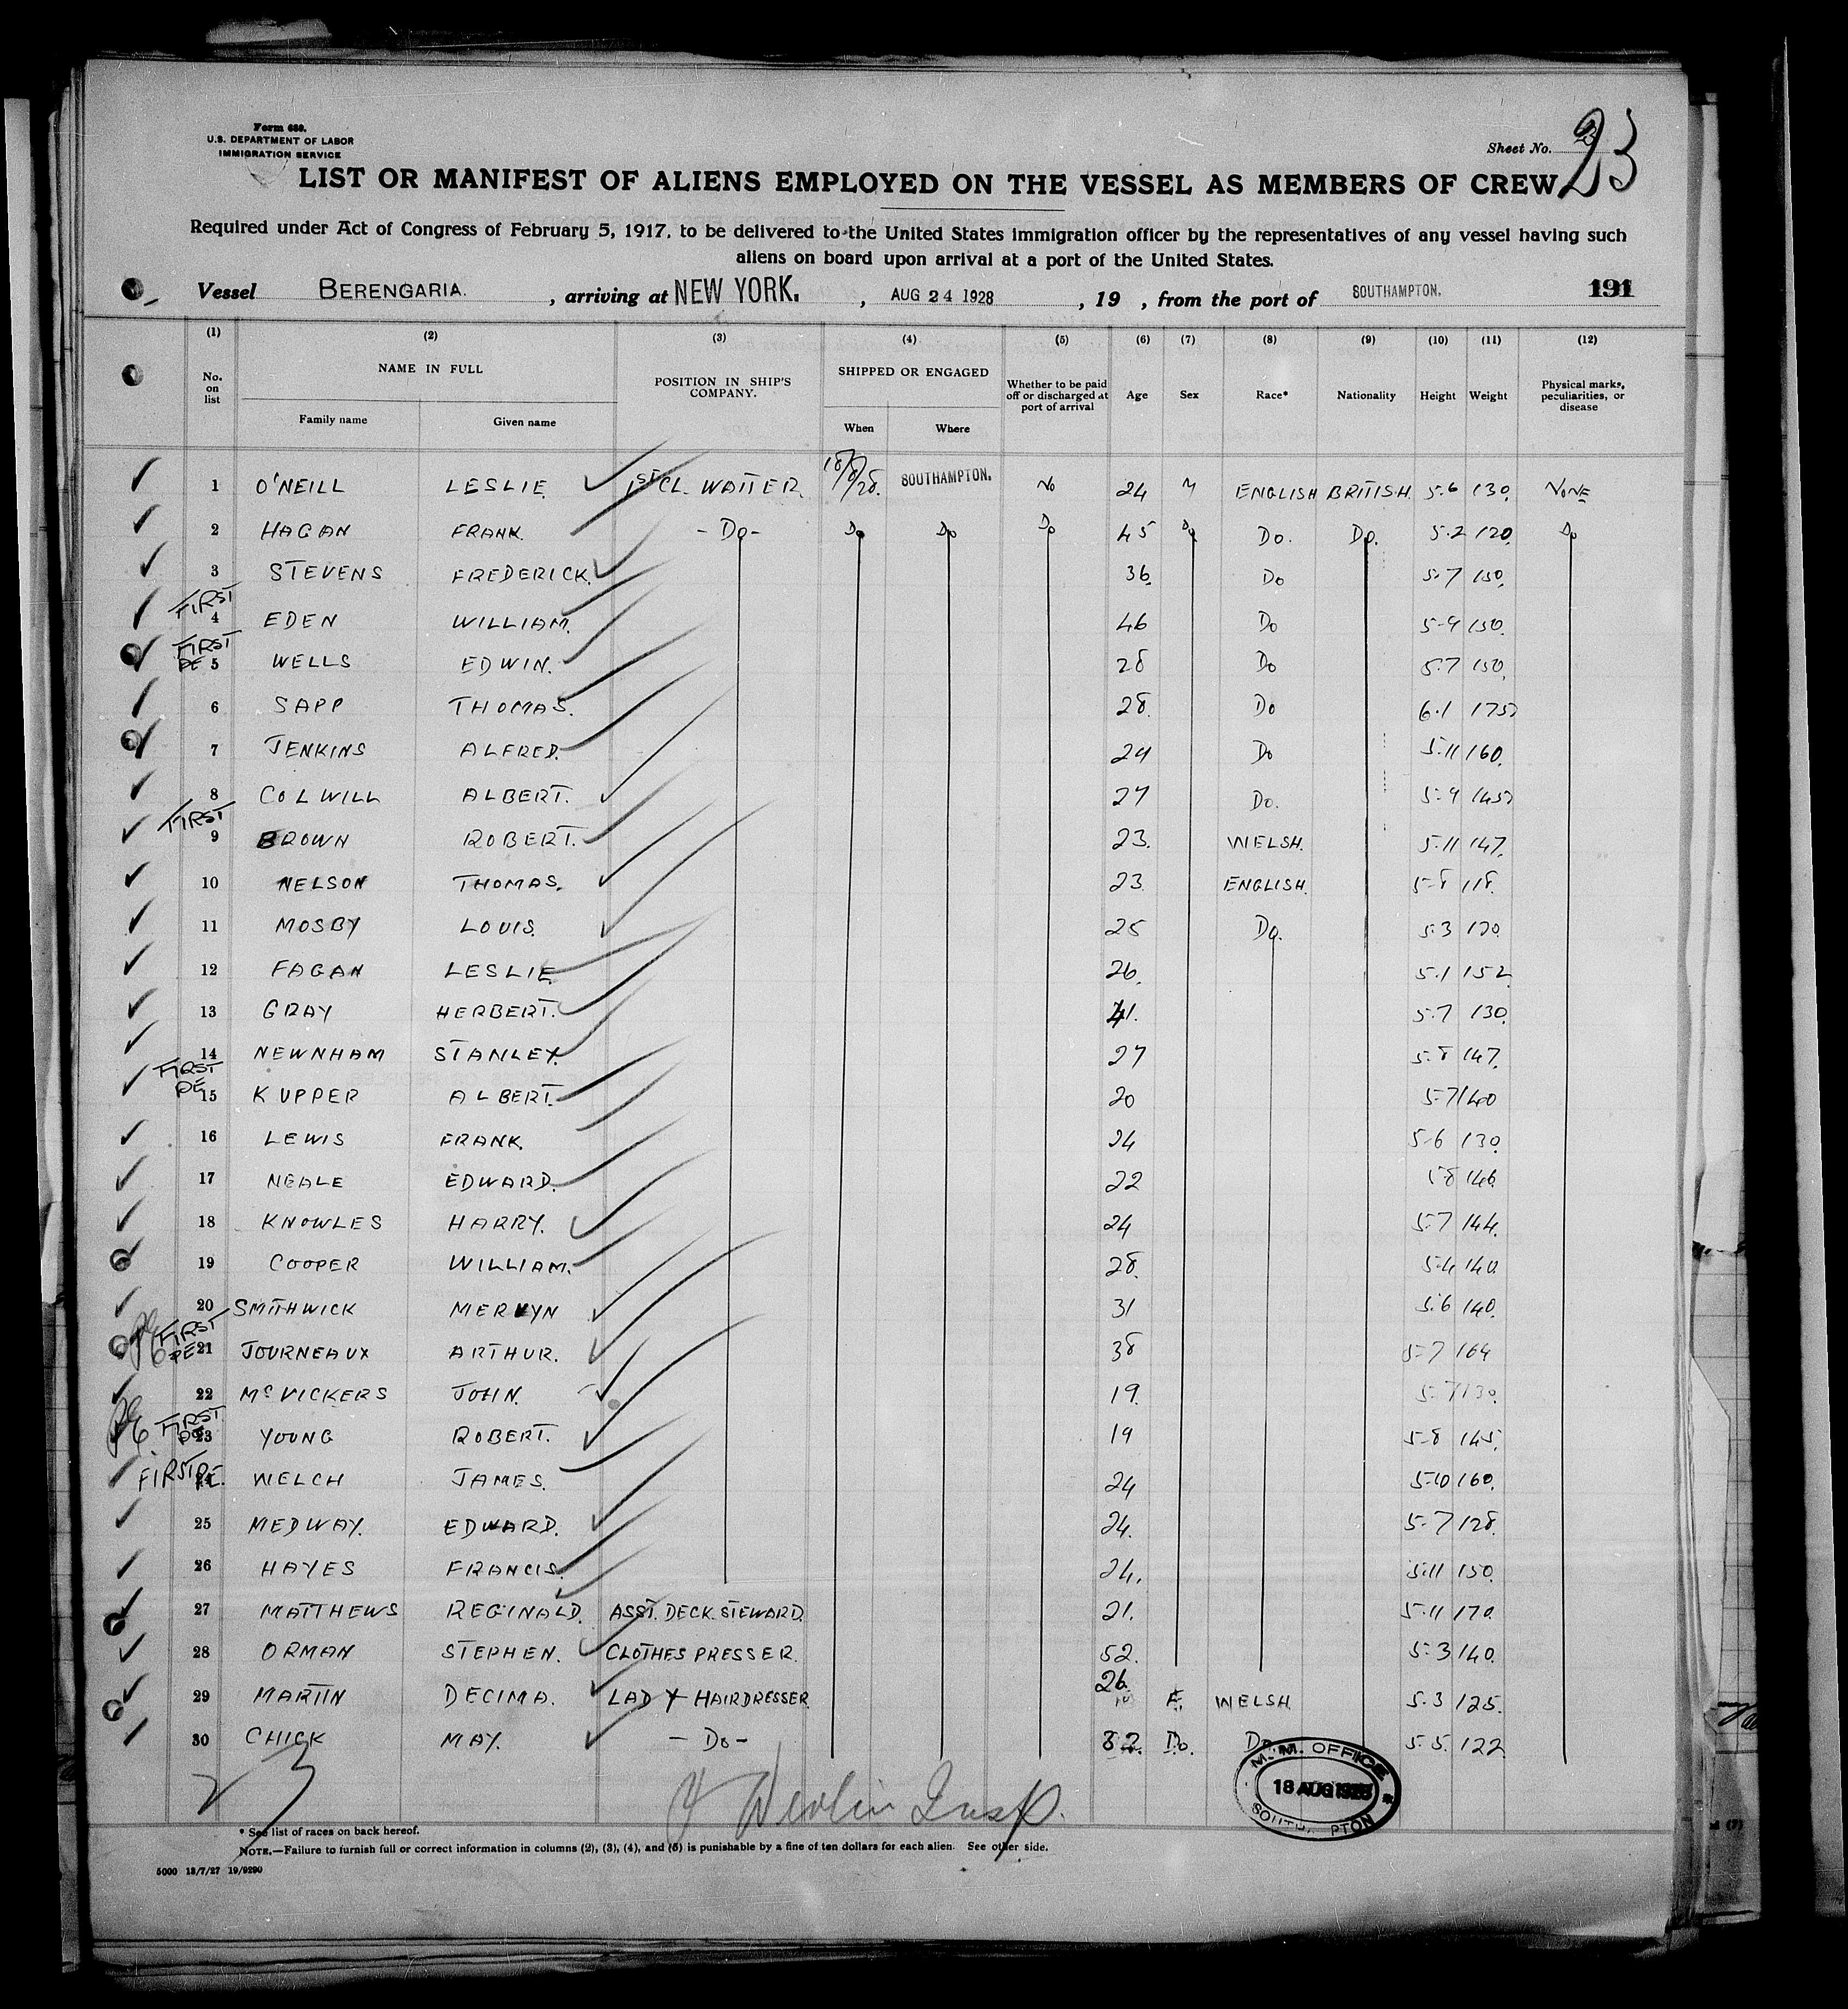 Form 689.
U.S. DEPARTMENT OF LABOR
IMMIGRATION SERVICE
Sheet No. 23
LIST OR MANIFEST OF ALIENS EMPLOYED ON THE VESSEL AS MEMBERS OF CREW
Required under Act of Congress of February 5, 1917, to be delivered to the United States immigration officer by the representatives of any vessel having such
aliens on board upon arrival at a port of the United States.
Vessel BERENGARIA. , arriving at NEW YORK. , AUG 24 1928 , 19 , from the port of SOUTHAMPTON. 191
(1) (2) (3) (4) (5) (6) (7) (8) (9) (10) (11) (12)
No. on list NAME IN FULL Family name Given name POSITION IN SHIP'S COMPANY. SHIPPED OR ENGAGED When Where Whether to be paid off or discharged at port of arrival Age Sex Race* Nationality Height Weight Physical marks, peculiarities, or disease
1 O'NEILL LESLIE 1ST CL. WAITER. 18/8/28. SOUTHAMPTON. No 24 M ENGLISH BRITISH. 5.6 130. NONE
2 HAGAN FRANK. -Do- Do Do Do 45 Do Do. Do. 5.2 120. Do
3 STEVENS FREDERICK. 36. Do 5.7 150.
FIRST 4 EDEN WILLIAM. 46 Do 5-9 150.
FIRST PE 5 WELLS EDWIN. 28 Do 5.7 150.
6 SAPP THOMAS. 28. Do 6.1 175
7 JENKINS ALFRED. 24 Do 5.11 160.
8 COLWILL ALBERT. 27 Do. 5.9 145
FIRST 9 BROWN ROBERT. 23. WELSH. 5.11 147.
10 NELSON THOMAS. 23 ENGLISH. 5-8 118.
11 MOSBY LOUIS. 25 Do. 5.3 120.
12 FAGAN LESLIE 26. 5.1 152
13 GRAY HERBERT. 41. 5.7 130.
14 NEWNHAM STANLEY. 27 5.8 147.
FIRST PE 15 KUPPER ALBERT. 20 5-7 140
16 LEWIS FRANK. 24 5-6 130.
17 NEALE EDWARD. 22 5-8 146.
18 KNOWLES HARRY. 24 5.7 144.
19 COOPER WILLIAM. 28. 5.4 140.
20 SMITHWICK MERVYN 31 5.6 140.
FIRST PE 21 JOURNEAUX ARTHUR. 38 5-7 164
22 McVICKERS JOHN. 19. 5.7 130.
FIRST PE 23 YOUNG ROBERT. 19 5-8 145.
FIRST PE. 24 WELCH JAMES. 24 5-10 160.
25 MEDWAY. EDWARD. 24. 5.7 128.
26 HAYES FRANCIS. 24. 5.11 150.
27 MATTHEWS REGINALD. ASST. DECK STEWARD. 21. 5.11 170.
28 ORMAN STEPHEN. CLOTHES PRESSER. 52. 5.3 140.
29 MARTIN DECIMA. LADY HAIRDRESSER 26. F. WELSH. 5.3 125.
30 CHICK MAY. -Do- 32. Do. Do 5.5. 122
M.M. OFFICE
18 AUG 1928
Insp.
* See list of races on back hereof.
NOTE.—Failure to furnish full or correct information in columns (2), (3), (4), and (5) is punishable by a fine of ten dollars for each alien. See other side.
5000 13/7/27 19/9290